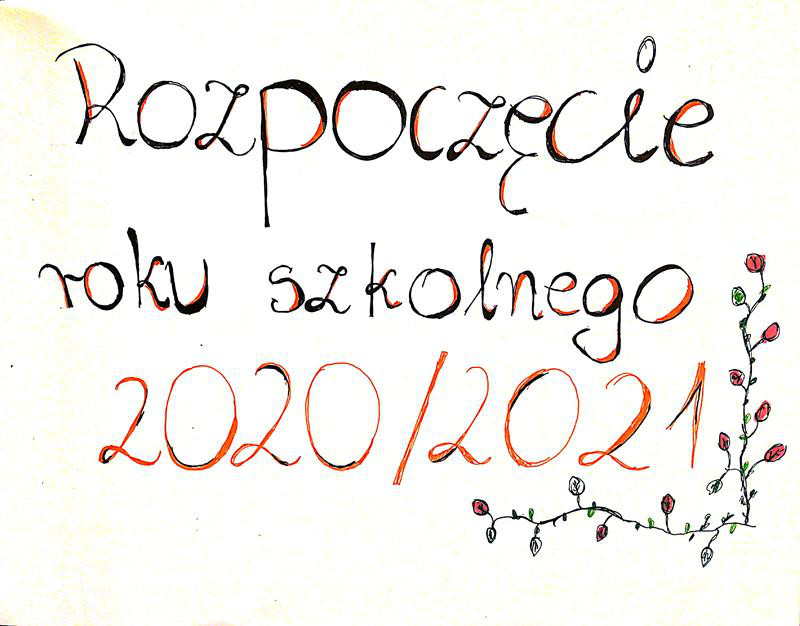 Rozpoczęcie
roku szkolnego
2020/2021